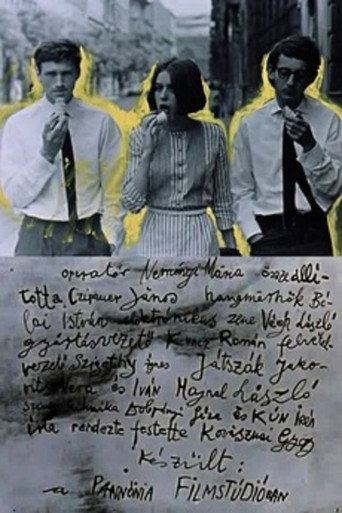 operatőr Neményi Mária összeálli-
totta Czipauer János hangmérnök Bé-
lai István elektronikus zene Végh László
gyártásvezető Kunz Román felvétel-
vezető Szigethy Ágnes Játszák Jako-
vits Vera és Iván Hajnal László
technika Dobrányi Géza és Kún Irén
írta rendezte festette Kovásznai György
készült:
a PANNÓNIA FILMSTÚDIÓBAN